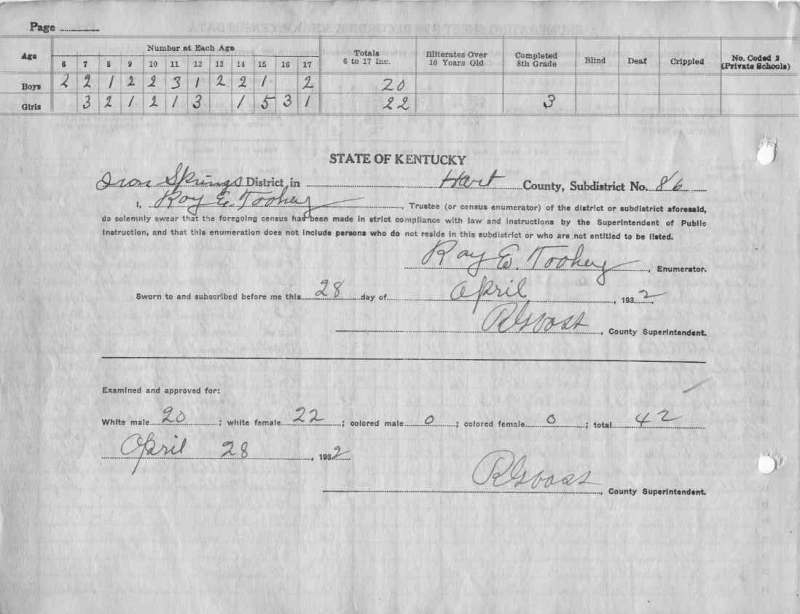 Page
Age Number at Each Age Totals 6 to 17 Inc. Illiterates Over 10 Years Old Completed 8th Grade Blind Deaf Crippled No. Coded 2 (Private Schools)
6 7 8 9 10 11 12 13 14 15 16 17
Boys 2 2 1 2 2 3 1 2 2 1 2 20
Girls 3 2 1 2 1 3 1 5 3 1 22 3
STATE OF KENTUCKY
Iron Springs District, in Hart County, Subdistrict No. 86
I, Roy E. Toohey, Trustee (or census enumerator) of the district or subdistrict aforesaid,
do solemnly swear that the foregoing census has been made in strict compliance with law and instructions by the Superintendent of Public
Instruction, and that this enumeration does not include persons who do not reside in this subdistrict or who are not entitled to be listed.
Roy E. Toohey, Enumerator.
Sworn to and subscribed before me this 28 day of April, 1932
, County Superintendent.
Examined and approved for:
White male 20; white female 22; colored male 0; colored female 0; total 42
April 28, 1932
, County Superintendent.